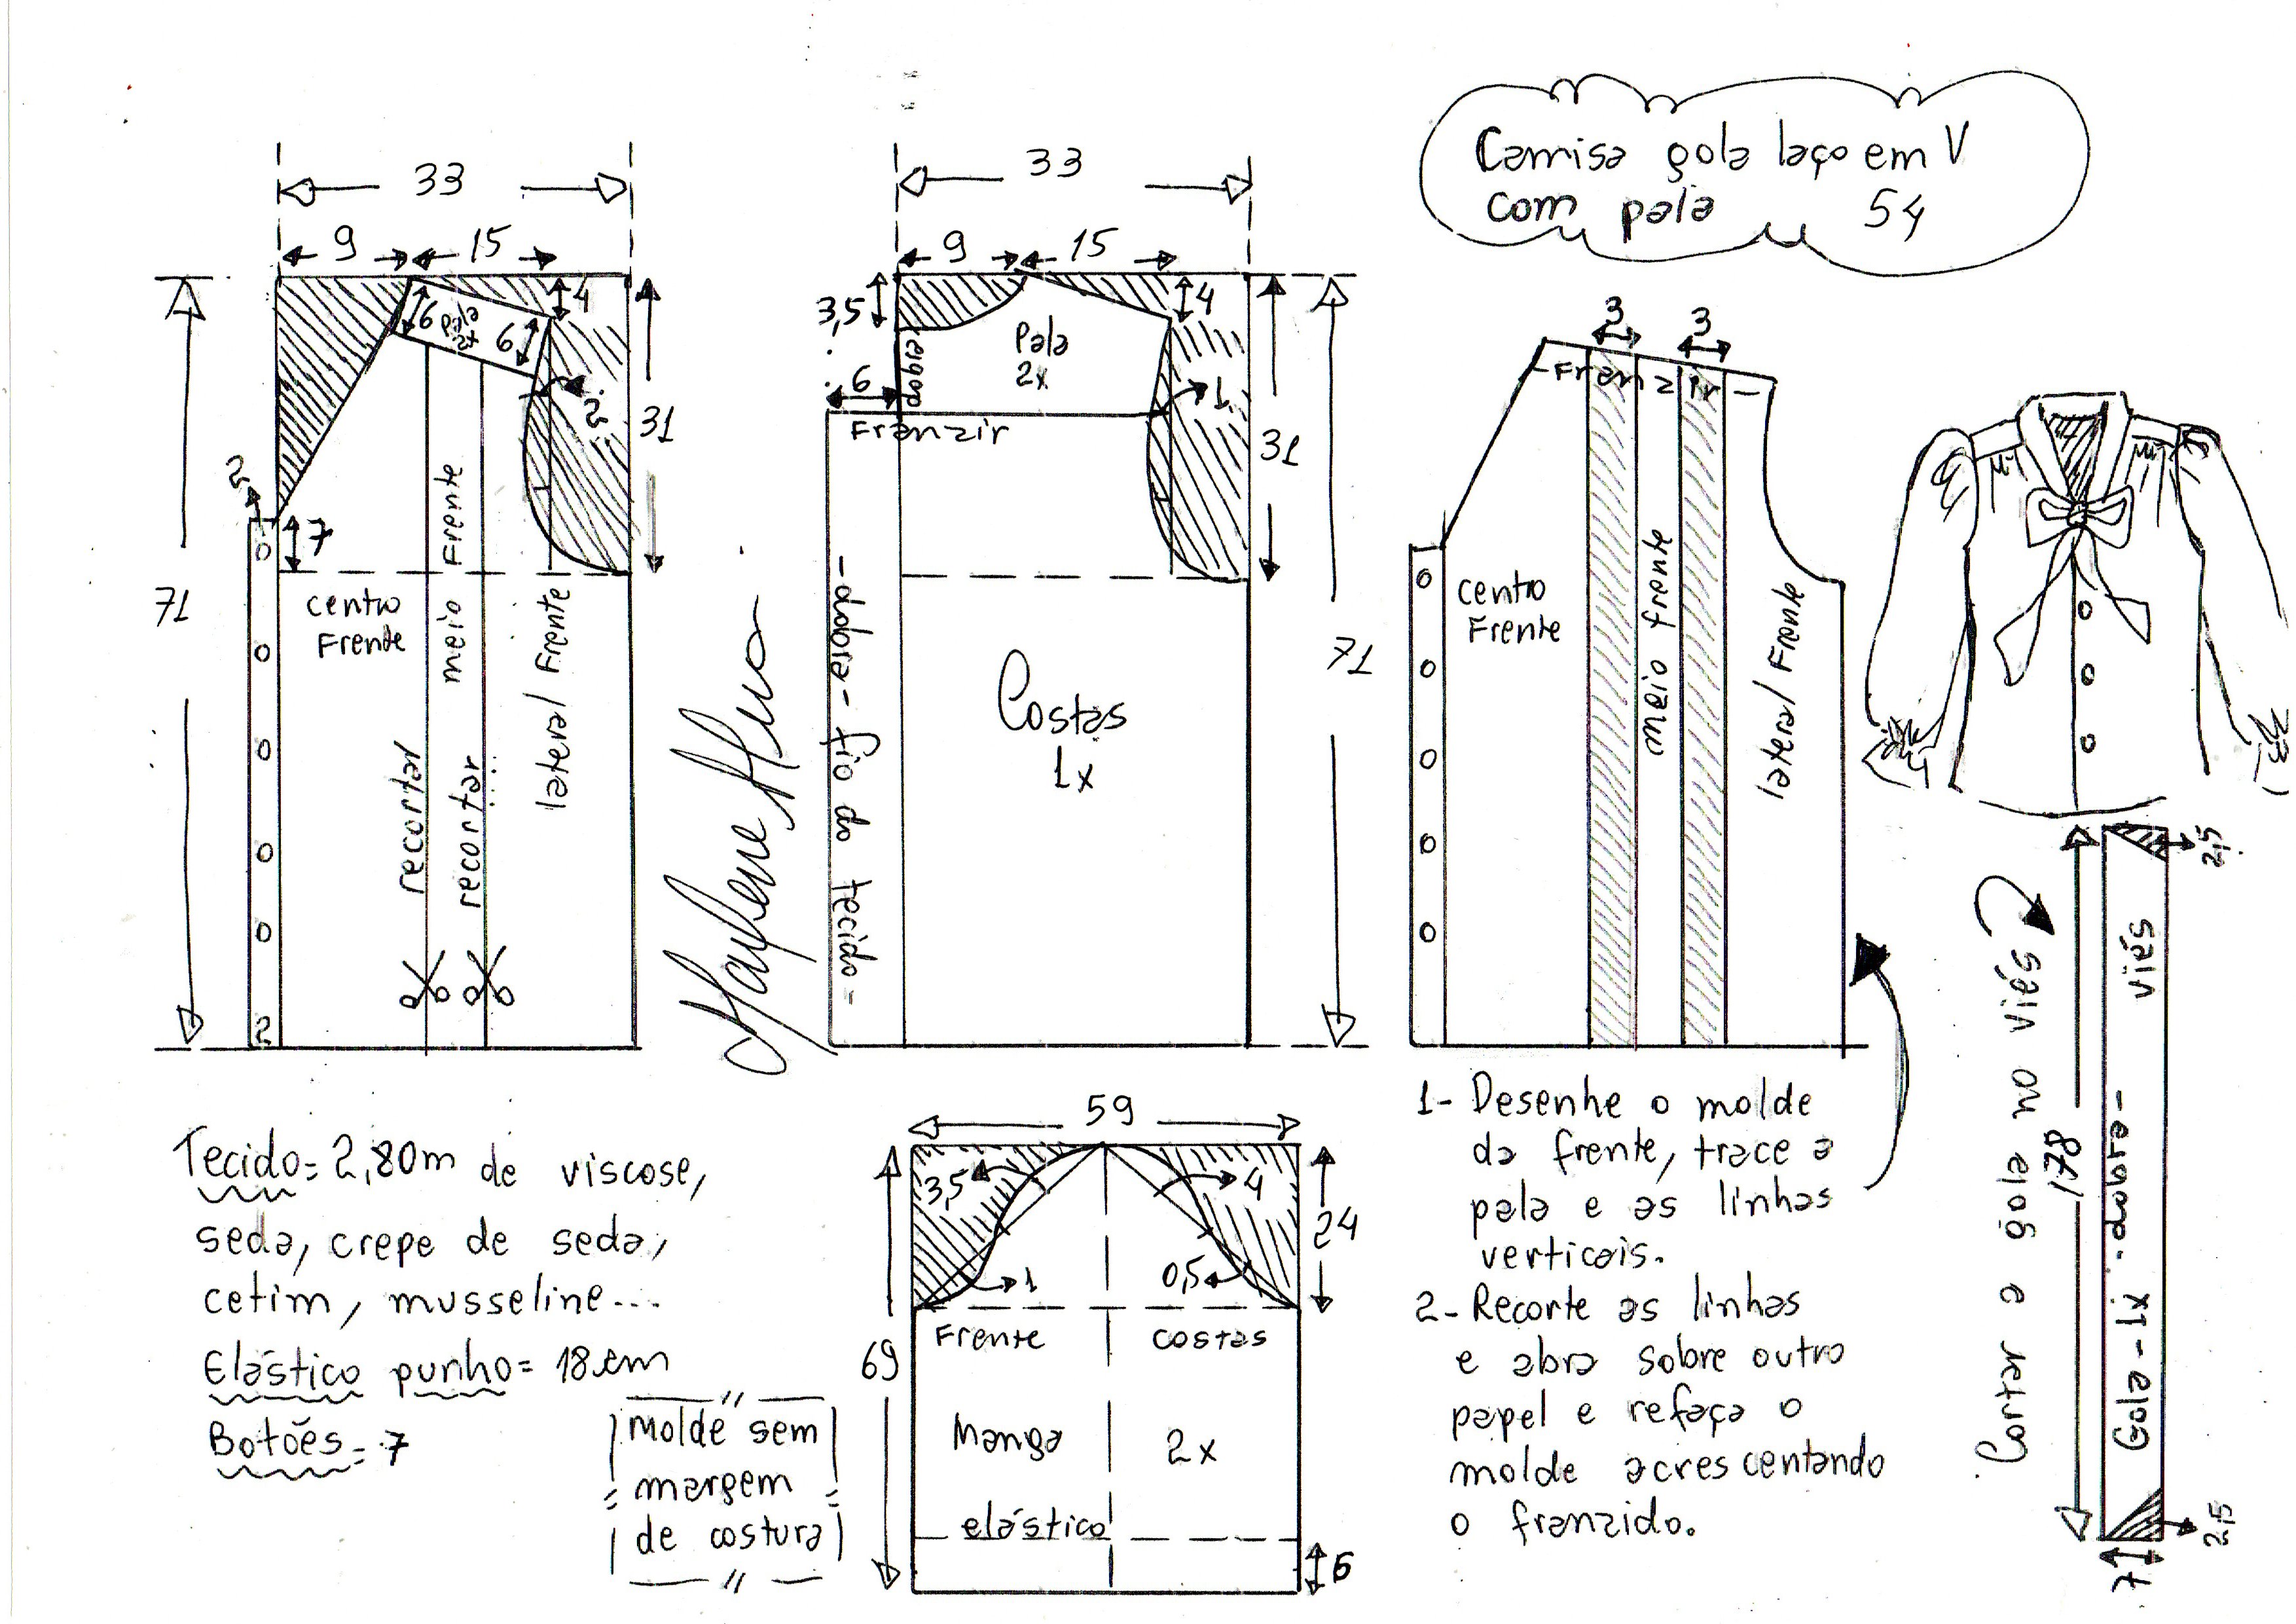 Camisa gola laço em V
com pala 54
33
9 15
4
6
Pala
2x
6
2
31
2
7
71
centro
Frente
meio Frente
lateral Frente
recortar
recortar
2
33
9 15
3,5
4
dobra
Pala
2x
6
1
Franzir
31
71
-dobra- fio do tecido-
Costas
1x
3 3
-Franzir-
centro
Frente
meio frente
lateral Frente
Tecido= 2,80m de viscose,
seda, crepe de seda,
cetim, musseline...
Elástico punho= 18cm
Botões= 7
molde sem
margem
de costura
59
3,5
4
24
1
0,5
Frente costas
69
Manga 2x
elástico
6
1- Desenhe o molde
da frente, trace a
pala e as linhas
verticais.
2- Recorte as linhas
e abra sobre outro
papel e refaça o
molde acrescentando
o franzido.
Cortar a gola no viés
178
2,5
Gola - 1x - dobra - viés
2,5
7